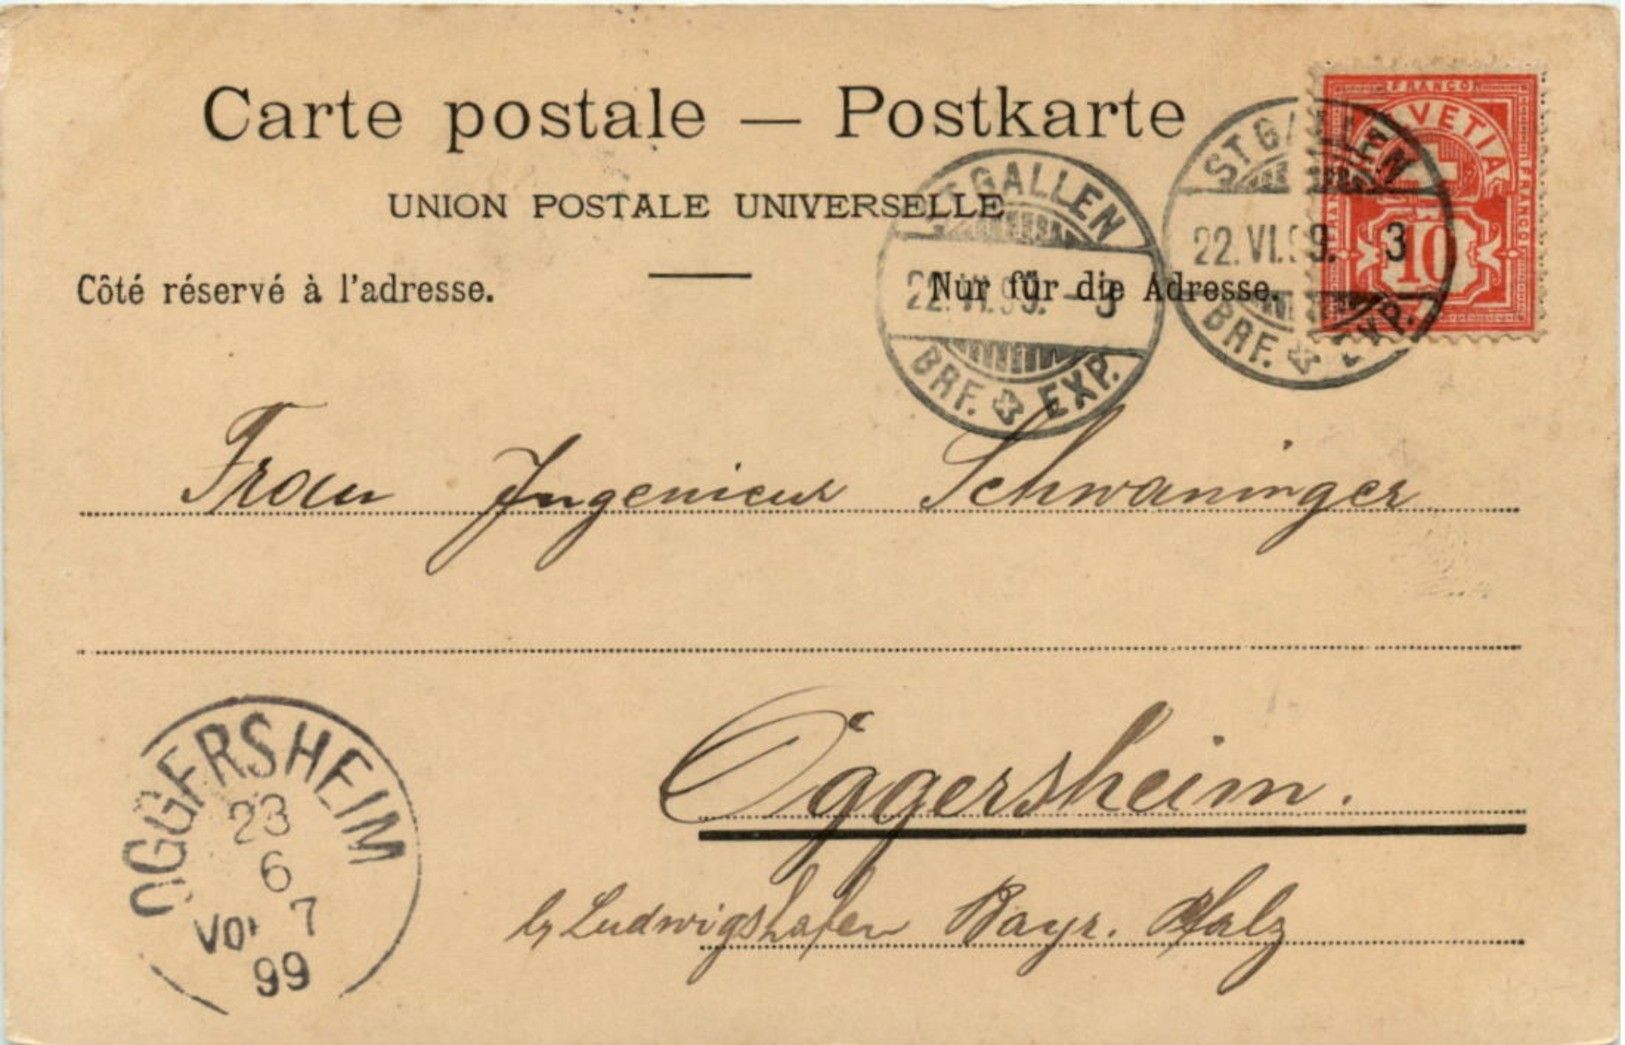 Carte postale — Postkarte
UNION POSTALE UNIVERSELLE
Côté réservé à l'adresse.
Nur für die Adresse.
ST. GALLEN
22.VI.99. - 3
BRF. EXP.
ST. GALLEN
22.VI.99. 3
BRF. EXP.
FRANCO
HELVETIA
FRANCO
FRANCO
10
Frau Ingenieur Schwaninger
Oggersheim.
by Ludwigshafen Bayr. Pfalz
OGGERSHEIM
23
6
Vor 7
99